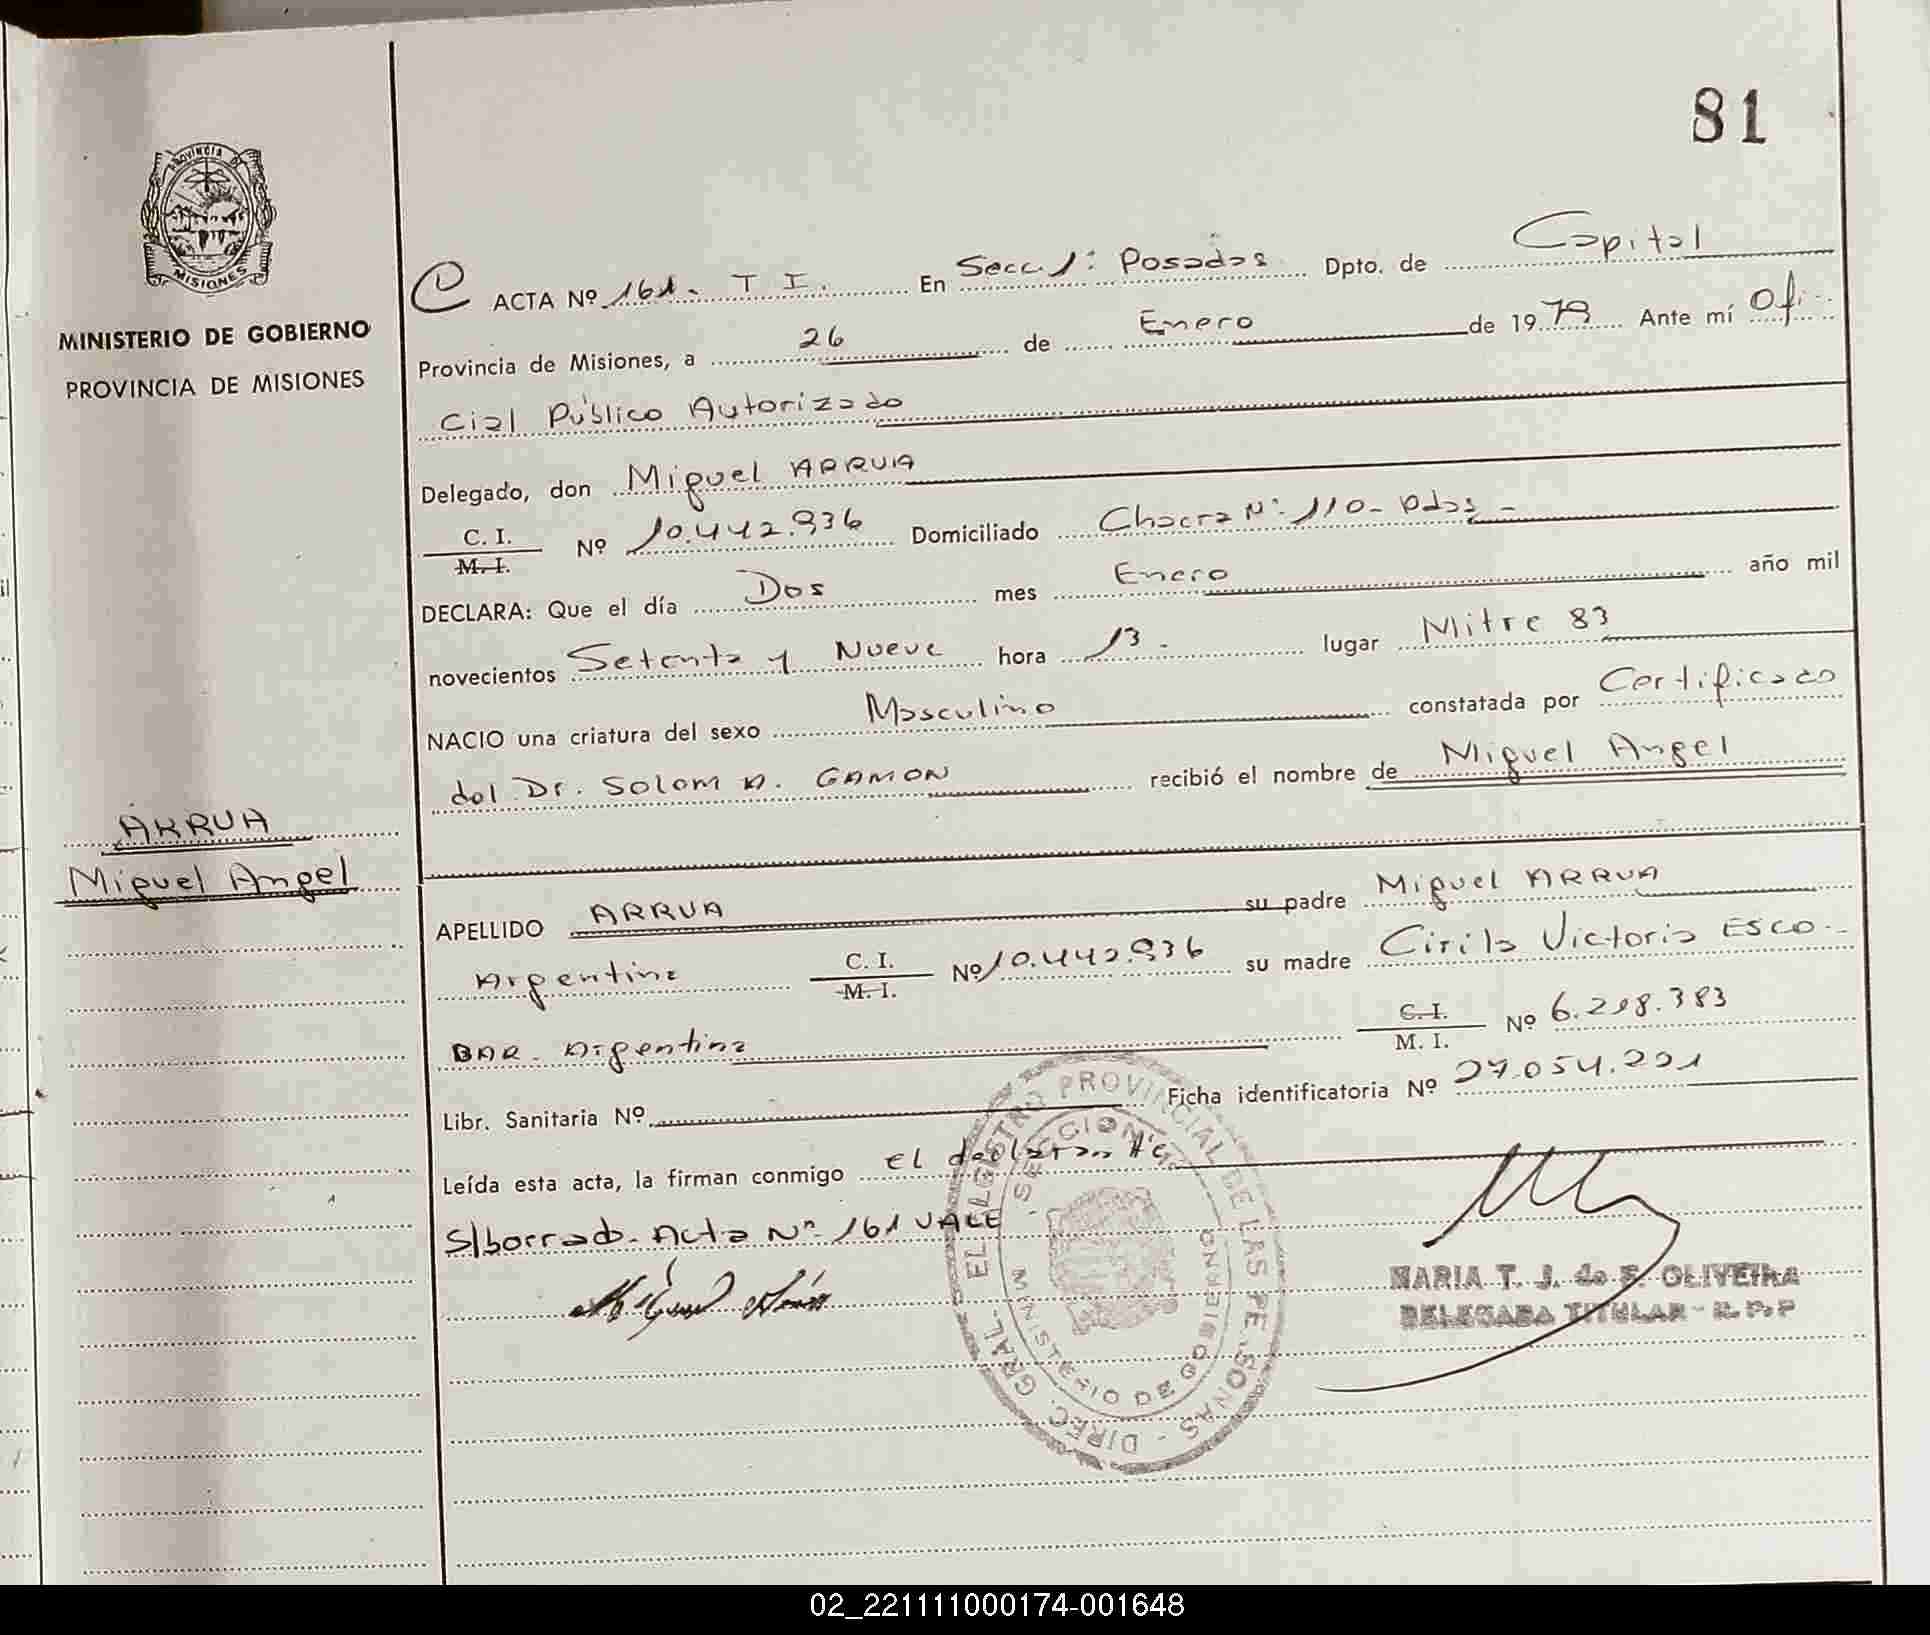 81
PROVINCIA DE
MISIONES
MINISTERIO DE GOBIERNO
PROVINCIA DE MISIONES
ARRUA
Miguel Angel
ACTA Nº 161. T I. En Secc. 1: Posadas Dpto. de Capital
Provincia de Misiones, a 26 de Enero de 1979 Ante mí Ofi-
cial Público Autorizado
Delegado, don Miguel ARRUA
C. I.
M. I.
Nº 10.442.936 Domiciliado Chacra Nº 110- Pdas -
DECLARA: Que el día Dos mes Enero año mil
novecientos Setenta y Nueve hora 13. lugar Mitre 83
NACIO una criatura del sexo Masculino constatada por Certificado
del Dr. SOLOM A. GAMON recibió el nombre de Miguel Angel
APELLIDO ARRUA su padre Miguel ARRUA
Argentina C. I. M. I. Nº 10.442.936 su madre Cirila Victoria ESCO-
BAR - Argentina C. I. M. I. Nº 6.298.383
Libr. Sanitaria Nº Ficha identificatoria Nº 27.054.221
Leída esta acta, la firman conmigo el declarante
S/borrado. Acta Nº 161 VALE
MARIA T. J. de S. OLIVEIRA
DELEGADA TITULAR - R. P. P
DIREC. GRAL. EL REGISTRO PROVINCIAL DE LAS PERSONAS -
- SECCION 1ª - MINISTERIO DE GOBIERNO
02_221111000174-001648